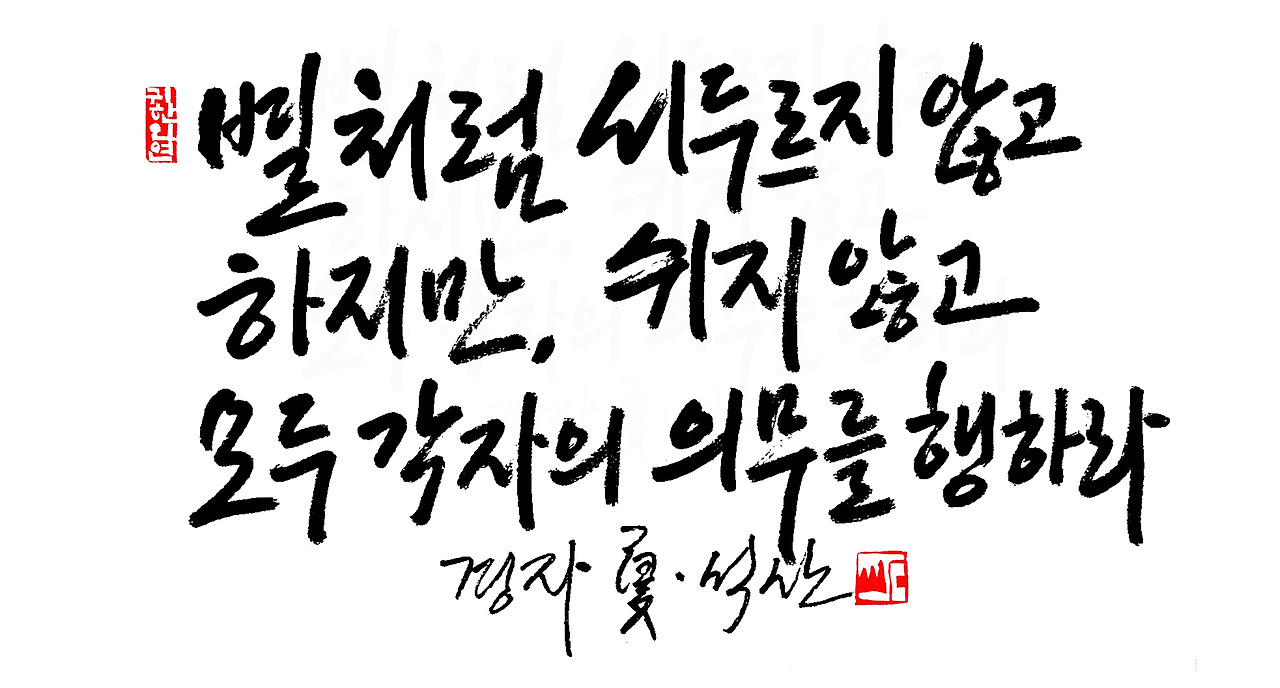 별처럼 서두르지 않고
하지만, 쉬지 않고
모두 각자의 의무를 행하라
경자 夏·석산